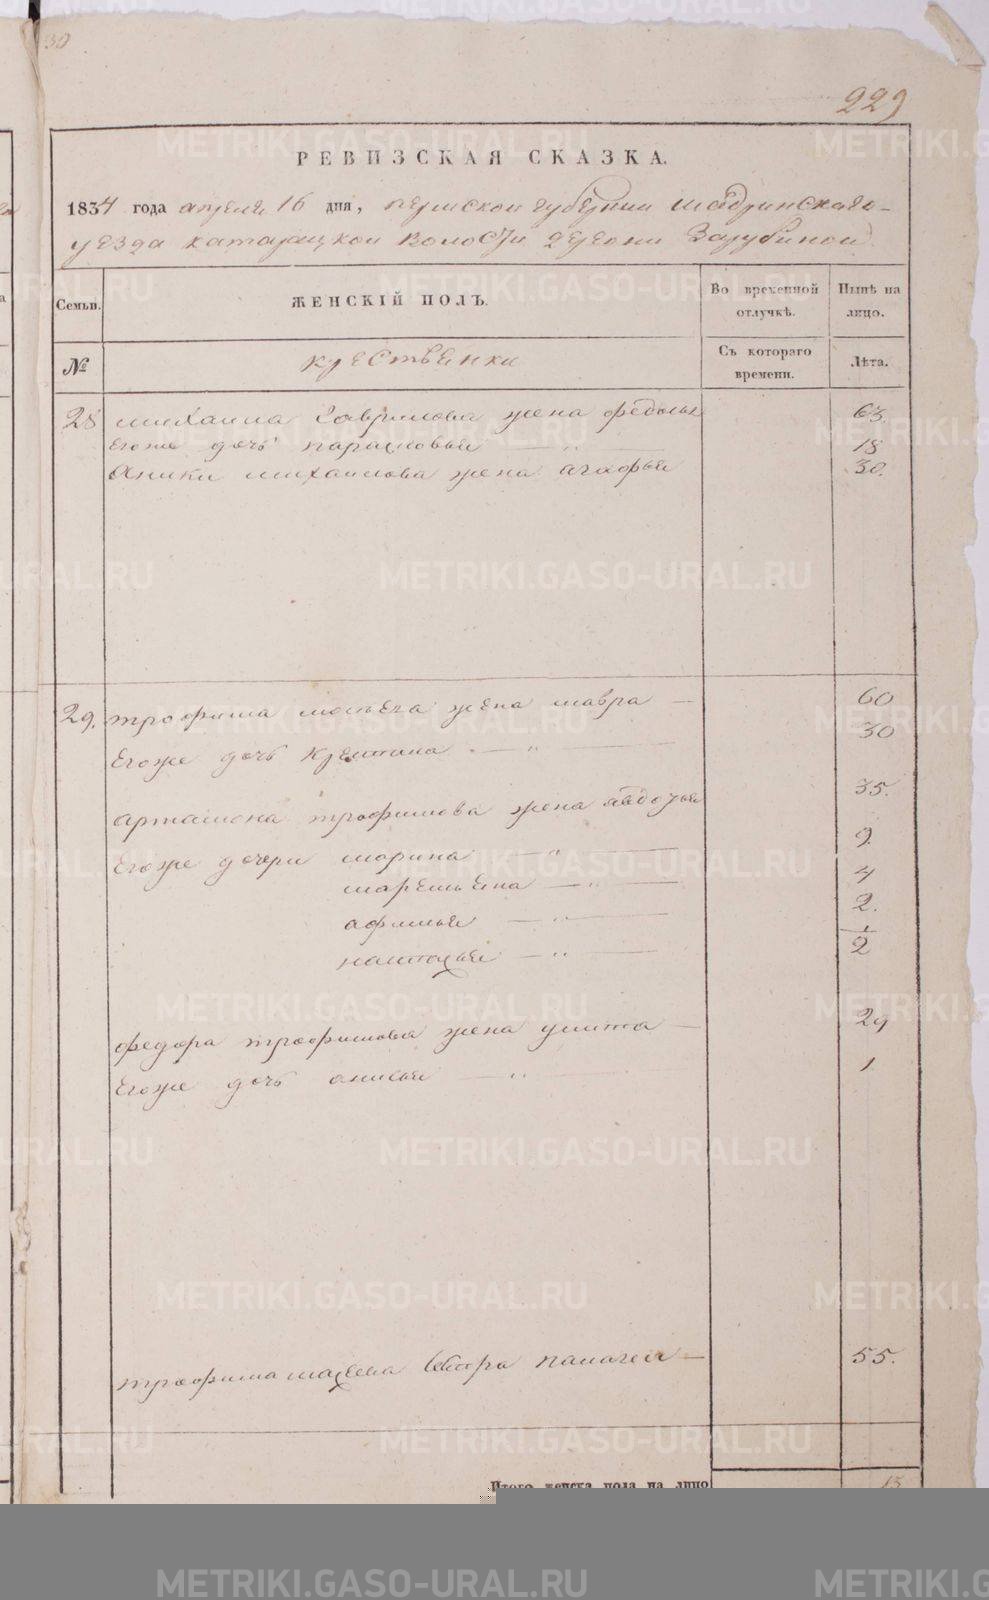 30
229
РЕВИЗСКАЯ СКАЗКА.
1834 года апреля 16 дня, пермской губернии шадринскаго
уезда катайцкой волости деревни Зарубиной
Семьи. ЖЕНСКІЙ ПОЛЪ. Во временной отлучкѣ. Нынѣ на лицо.
№ крестьенки Съ котораго времени. Лѣта.
28 михаила Гаврилова жена федосья 63.
Егоже дочь парасковья — „ — 18
Аники михаилова жена агафья 30.
29. трофима жена мавра — 60
Егоже дочь Крестина — „ — 30
артамона трофимова жена авдотья 35.
Егоже дочери марина — „ — 9
маремьена — „ — 4
афимья — „ — 2.
настасья — „ — 1/2
федора трофимова жена улита — 29
Егоже дочь анисья — „ — 1
трофима сестра палагея — 55.
Итого женска пола на лицо 13
METRIKI.GASO-URAL.RU